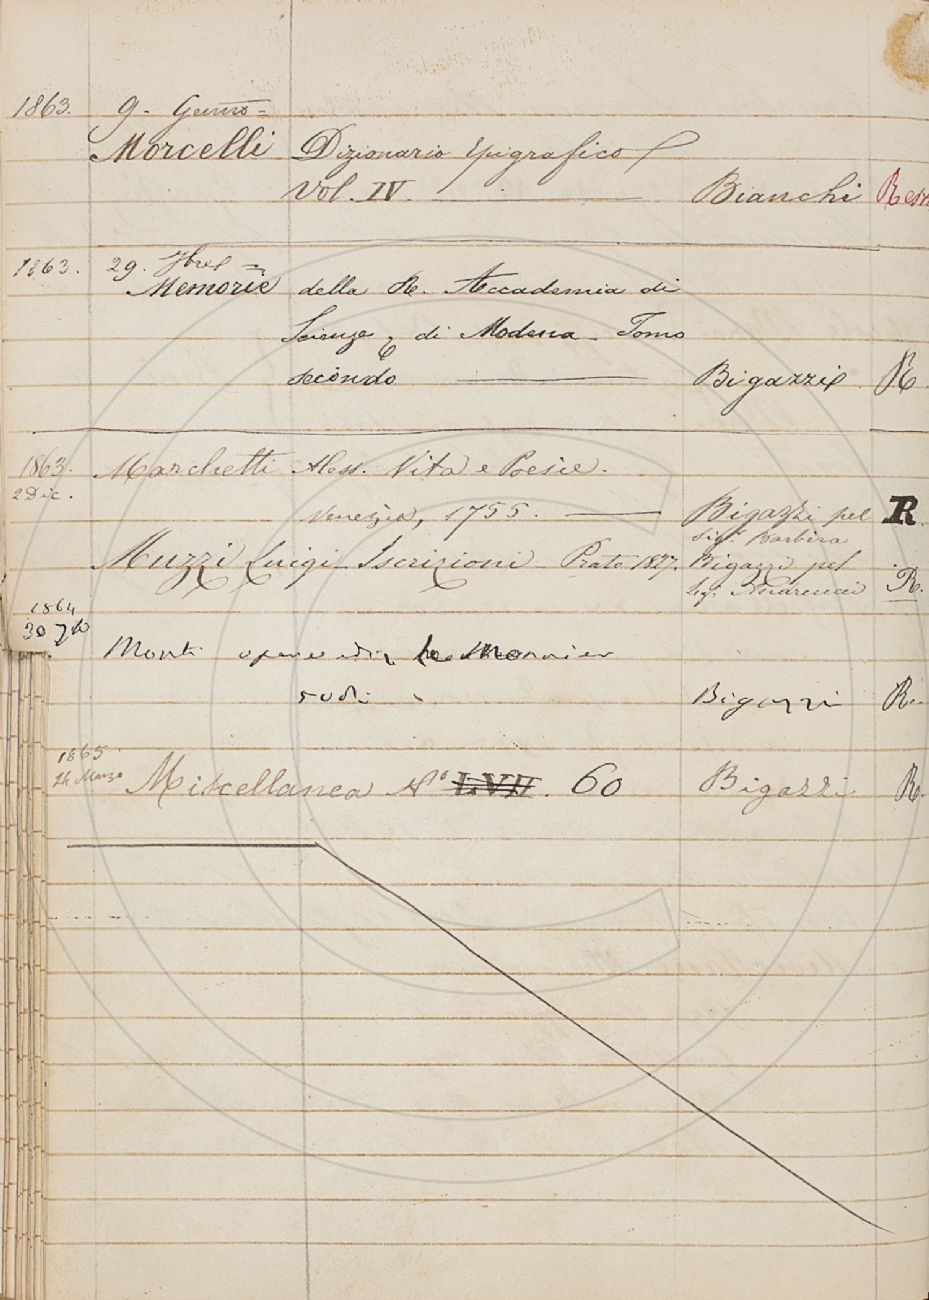 1863. 9. Genno=
Morcelli Dizionario Epigrafico
Vol. IV. Bianchi Rest
1863. 29. 7bre =
Memorie della R. Accademia di
Scienze, di Modena. Tomo
secondo Bigazzi R
1863. Marchetti Aless. Vita e Poesie.
2 Dic.
Venezia, 1755. Bigazzi pel R.
Sigr. Barbèra
Muzzi Luigi Iscrizioni Prato 1827. Bigazzi pel
Sigr. Andreucci R.
1864
30
Monti opere ediz. Le Monnier
Bigazzi R.
1865
24 Marzo Miscellanea No LVII. 60 Bigazzi R.